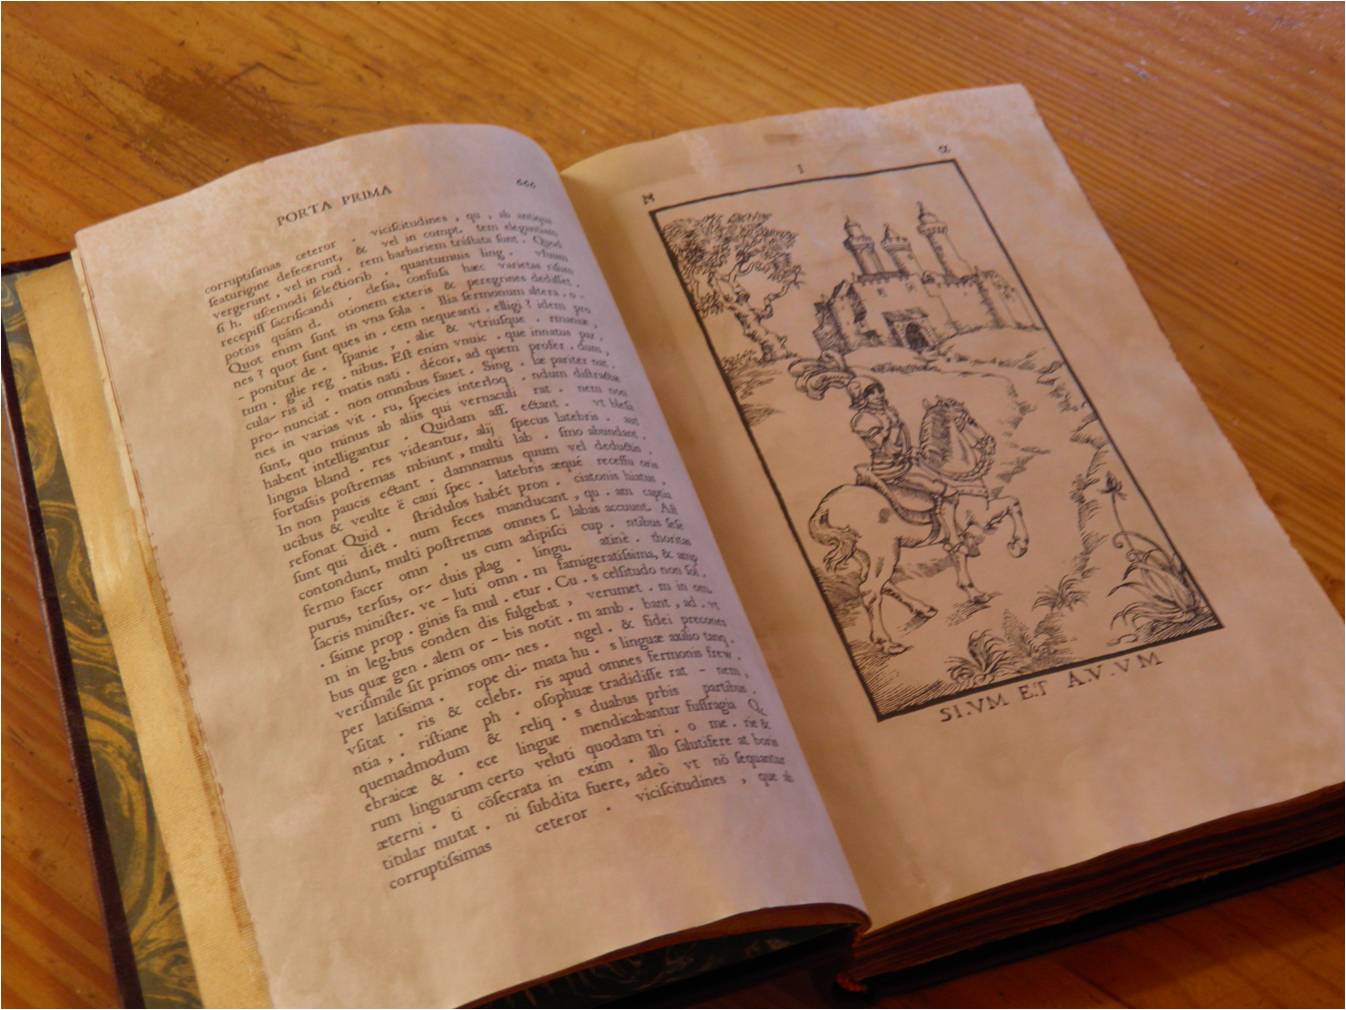 PORTA PRIMA 666
corruptiſsimas ceteror . viciſcitudines , qu , ab antiqua
ſcaturigine defecerunt, & vel in compt. tem elegantiam
vergerunt , vel in rud . rem barbariem ſunt . Quod
ſi h. uſcemodi ſelectiorib . quantumuis ling . vſuum
recepiſſ ſacrificandi . deſia, confuſa hæc varietas
potius quàm d. otionem exteris & peregrines dediſſet.
Quot enim ſunt in vna ſola . Ilia ſermonum altera . o .
nes ? quot ſunt ques in . cem nequeanti . elligi ? idem pro
- ponitur de . ſpanie , . alie & vtriuſque . rmanie ,
tum . glie reg . nibus. Eſt enim vnuic . que innatus par .
cula- ris id . matis nati . décor, ad quem profer . dum ,
pro- nunciat . non omnibus fauet . Sing . læ pariter nat .
nes in varias vit . ru, ſpecies interloq . ndum diſtractæ
ſunt, quo minus ab aliis qui vernaculi rat . nem non
habent intelligantur . Quidam aſſ. ectant . vt bleſa
lingua bland . res videantur, alij ſpecus latebris . aut
fortaſsis poſtremas mbiunt , multi lab . ſmo abundant .
In non paucis ectant . damnamus quum vel deductis ,
ucibus & veulte c̃ caui ſpec . latebris æquè receſſu oris
reſonat Quid . ſtridulos habét pron . ciatonis hiatus ,
ſunt qui dict . num feces manducant , qu . am captia
contondunt, multi poſtremas omnes ſ. labas accuunt. Aſt
fermo facer omn . us cum adipiſci cup . ntibus ſeſe
purus, terſus, or- duis plag . lingu. atinè . thoritas
ſacris miniſter. ve - luti omn . m famigeratiſsima, & amp
. ſsime prop . ginis fa mul . etur . Cu . s celſitudo non ſol .
m in leg.bus conden dis fulgebat , verumet . m in om.
bus quæ gen . alem or - bis notit . m amb . bant , ad . vt
veriſimile ſit primos om- nes . ngel . & fidei precones
per latiſsima . rope di- mata hu . s linguæ axilio tanq .
vſitat . ris & celebr. ris apud omnes ſermonis frew .
ntia , . riſtiane ph . oſophuæ tradidiſſe rat - nem ,
quemadmodum & reliq . s duabus prbis partibus .
ebraicæ & . ece lingue mendicabantur ſuffragia
rum linguarum certo veluti quodam tri . o me . rie &
æterni . ti cõſecrata in exim . illo ſalutifere at boris
titular mutat . ni ſubdita fuere, adeò vt nõ ſequantur
corruptiſsimas ceteror . viciſcitudines , que ab
M I
SI.VM ET A.V.VM